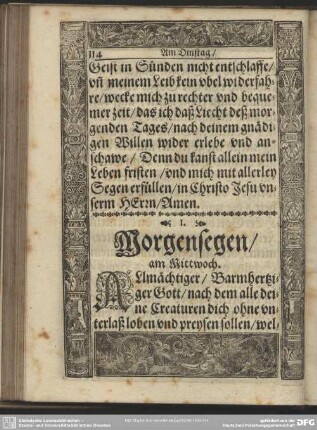 114 Am Dinstag/
Geist in Sünden nicht entschlaffe/
vñ meinem Leib kein vbel widerfah-
re/wecke mich zu rechter vnd beque-
mer zeit/das ich daß Liecht deß mor-
genden Tages/nach deinem gnädi-
gen Willen wider erlebe vnd an-
schawe/Denn du kanst allein mein
Leben fristen/vnd mich mit allerley
Segen erfüllen/in Christo Jesu vn-
serm HErrn/Amen.
I.
Morgensegen/
am Mittwoch.
ALlmächtiger/Barmhertzi-
ger Gott/nach dem alle dei-
ne Creaturen dich ohne vn-
terlaß loben vnd preysen sollen/wel-
Sächsische Landesbibliothek -
Staats- und Universitätsbibliothek Dresden
gefördert von der
Deutschen Forschungsgemeinschaft
DFG